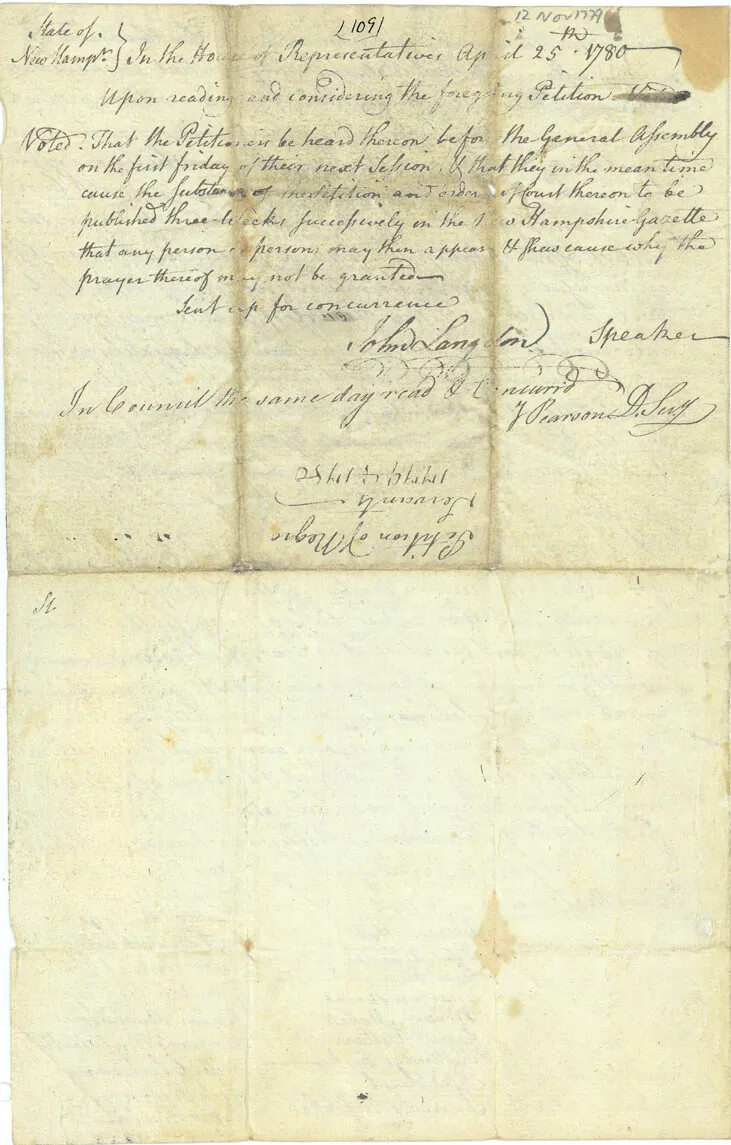 12 Nov 1779
L1091
State of
New Hampr. } In the House of Representatives April 25th. 1780
Upon reading and considering the foregoing Petition
Voted. That the Petitioners be heard thereon before the General Assembly
on the first friday of their next Session, & that they in the mean time
cause the Substance of the Petition and order of Court thereon to be
published three Weeks Successively in the New Hampshire Gazette
that any person or persons may then appear & Shew cause why the
prayer thereof may not be granted
Sent up for concurrence
John Langdon Speaker
In Council the same day read & Concurrd
J Pearson D. Secy
Petition of Negro
Servants
1779
St.